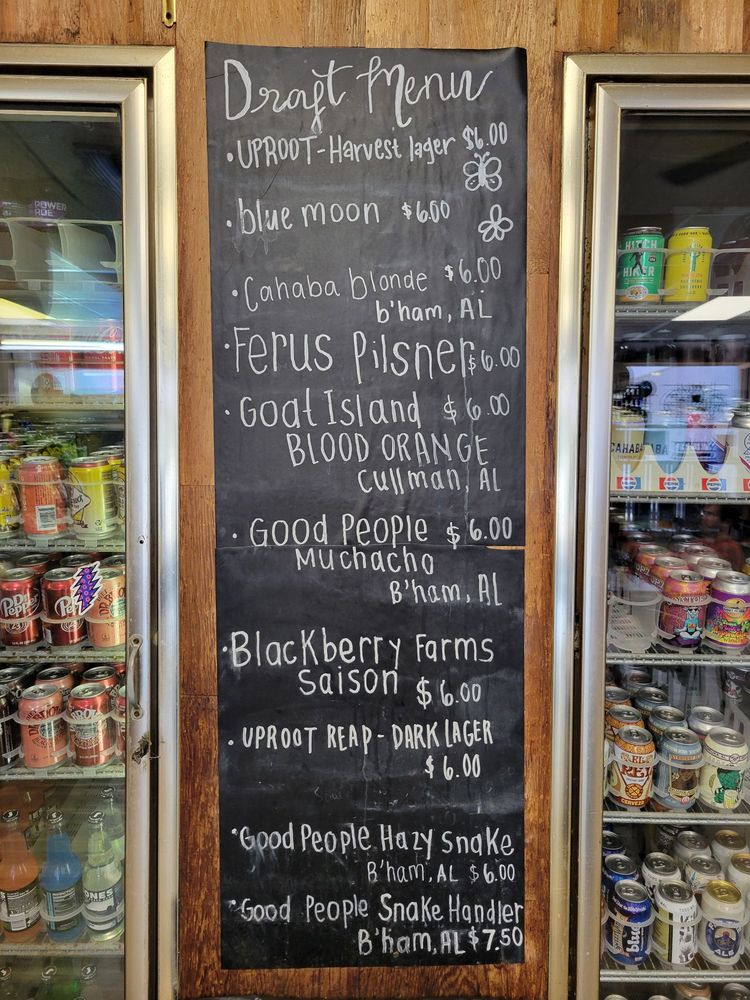 Draft Menu
• UPROOT-Harvest lager $6.00
• blue moon $6.00
• Cahaba blonde $6.00
b'ham, AL
• Ferus Pilsner $6.00
• Goat Island $6.00
BLOOD ORANGE
Cullman, AL
• Good People $6.00
Muchacho
B'ham, AL
• Blackberry Farms
Saison $6.00
• UPROOT REAP - DARK LAGER
$6.00
• Good People Hazy Snake
B'ham, AL $6.00
• Good People Snake Handler
B'ham, AL $7.50
POWER
ADE
Dr Pepper
23
HITCH
HIKER
CAHABA